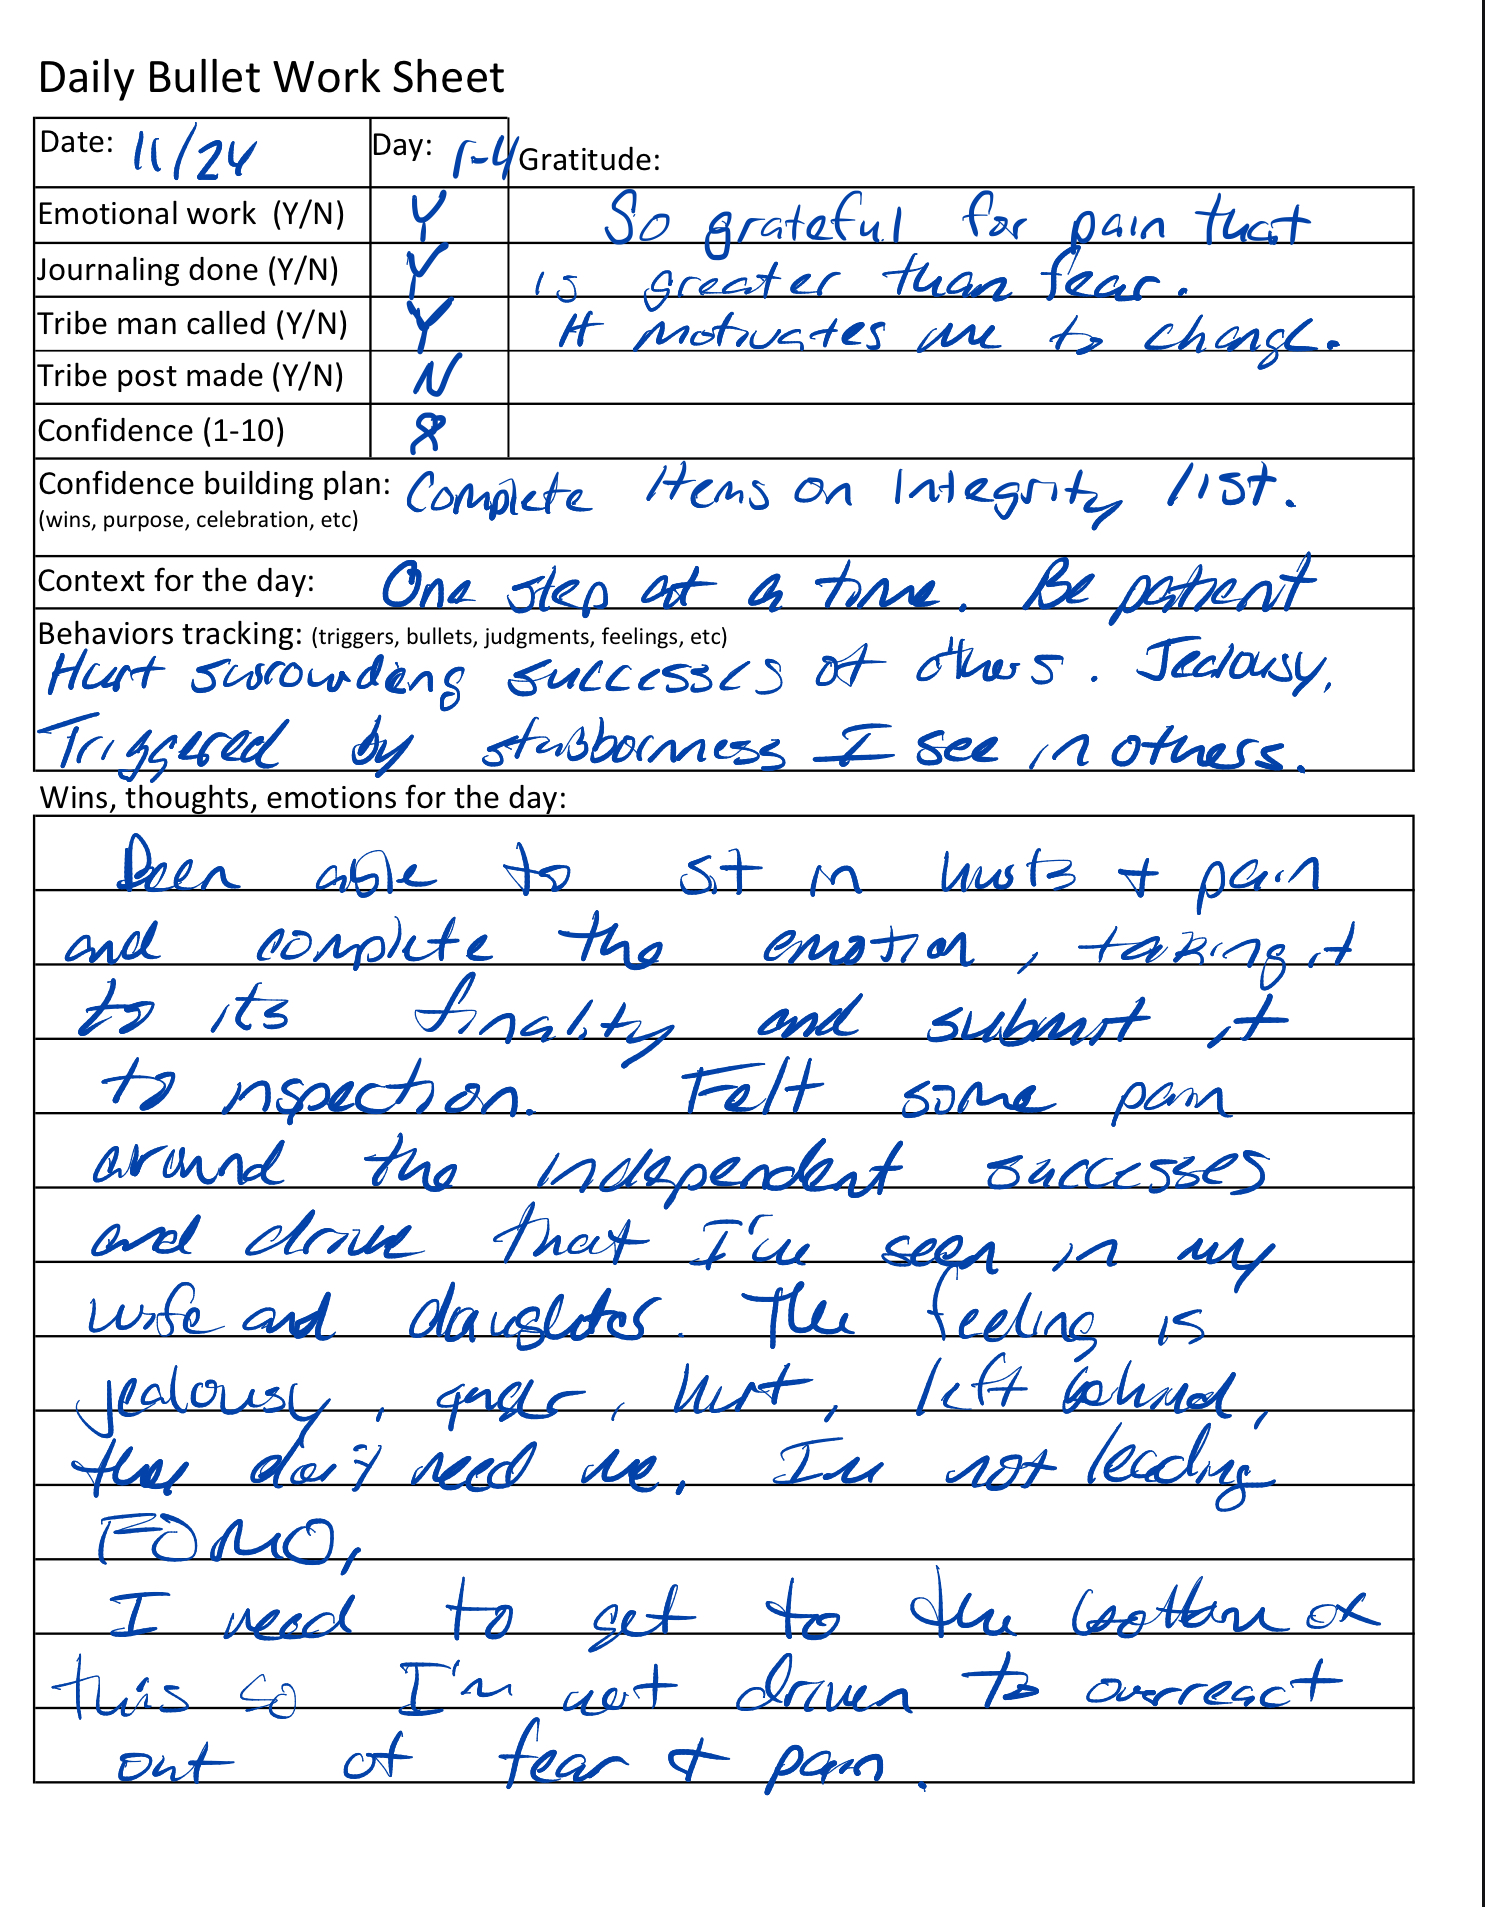 Daily Bullet Work Sheet
Date: 11/24 Day: 1-4 Gratitude:
Emotional work (Y/N) Y So grateful for pain that
Journaling done (Y/N) Y is greater than fear.
Tribe man called (Y/N) Y It motivates me to change.
Tribe post made (Y/N) N
Confidence (1-10) 8
Confidence building plan: Complete items on Integrity list.
(wins, purpose, celebration, etc)
Context for the day: One step at a time. Be patient
Behaviors tracking: (triggers, bullets, judgments, feelings, etc)
Hurt surrounding successes of others. Jealousy,
Triggered by stubbornness I see in others.
Wins, thoughts, emotions for the day:
Been able to sit in hurts + pain
and complete the emotion, taking it
to its finality and submit it
to inspection. Felt some pain
around the independent successes
and drive that I've seen in my
wife and daughter. The feeling is
jealousy, anger, hurt, left behind,
they don't need me, I'm not leading
FOMO,
I need to get to the bottom of
this so I'm not driven to overreact
out of fear + pain.